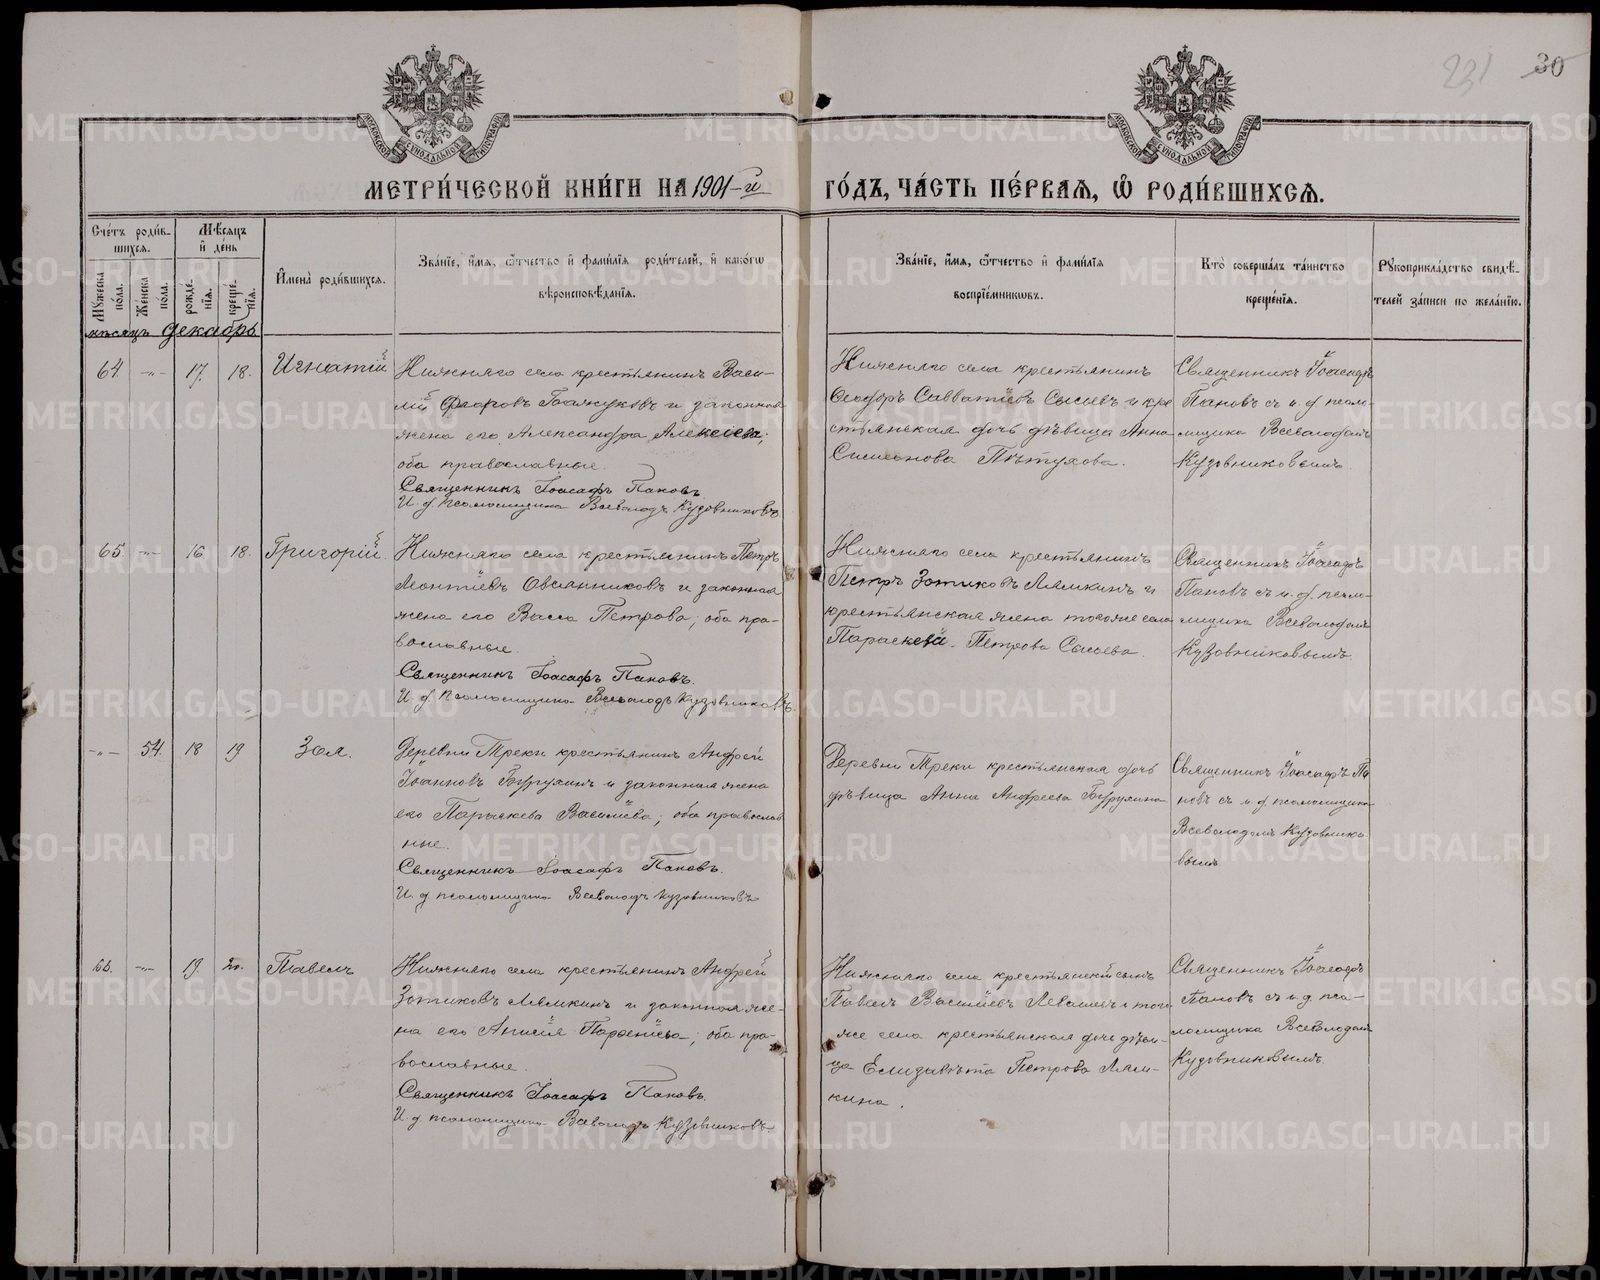 231 30
МОСКОВСКОЙ СѴНОДАЛЬНОЙ ТИПОГРАФІИ
МОСКОВСКОЙ СѴНОДАЛЬНОЙ ТИПОГРАФІИ
МЕТРИ́ЧЕСКОЙ КНИ́ГИ НА 1901-й ГО́ДЪ, ЧА́СТЬ ПЕ́РВАЯ, Ѡ РОДИ́ВШИХСЯ.
Сче́тъ роди́в-
шихся.
Мꙋ́жеска по́ла.
Же́нска по́ла.
Мѣ́сяцъ и де́нь
рожде́-
нїя.
креще́-
нїя.
И҆мена̀ роди́вшихся.
Зва́нїе, и҆́мя, ѻ҆́тчество и҆ фами́лїя роди́телей, и҆ како́гѡ
вѣроисповѣ́данїя.
Зва́нїе, и҆́мя, ѻ҆́тчество и҆ фами́лїя
воспрїе́мниковъ.
Кто̀ соверша́лъ та́инство
креще́нїя.
Рꙋкоприкла́дство свидѣ́-
телей за́писи по жела́нїю.
мѣсяцъ декабрь
64. -„- 17. 18. Игнатій
Нижняго села крестьянинъ Васи-
лій Ѳеоровъ и законная
жена его Александра Алексіева;
оба православные.
Священникъ Іоасафъ Пановъ.
И. д. псаломщика Всеволодъ Кузовниковъ.
Нижняго села крестьянинъ
Ѳеодоръ Савватіевъ Сысоевъ и кре
стьянская дочь дѣвица Анна
Симеонова Пѣтухова.
Священникъ Іоасафъ
Пановъ съ и. д. псало-
мщика Всеволодомъ
Кузовниковымъ.
65. -„- 16. 18. Григорій.
Нижняго села крестьянинъ Петръ
Леонтіевъ Овсянниковъ и законная
жена его Васса Петрова; оба пра-
вославные.
Священникъ Іоасафъ Пановъ.
И. д. псаломщика Всеволодъ Кузовниковъ.
Нижняго села крестьянинъ
Петръ Зотиковъ Лямкинъ и
крестьянская жена тогоже села
Параскева Петрова Сысоева.
Священникъ Іоасафъ
Пановъ съ и. д. псало-
мщика Всеволодомъ
Кузовниковымъ.
-„- 54. 18 19 Зоя.
Деревни Треки крестьянинъ Андрей
Іоанновъ Бурухинъ и законная жена
его Параскева Василіева; оба православ
ные.
Священникъ Іоасафъ Пановъ.
И. д. псаломщика Всеволодъ Кузовниковъ
Деревни Треки крестьянская дочь
дѣвица Анна Андреева Бурухина
Священникъ Іоасафъ Па
новъ съ и. д. псаломщика
Всеволодомъ Кузовнико
вымъ
66. -„- 19. 20. Павелъ
Нижняго села крестьянинъ Андрей
Зотиковъ Лямкинъ и законная же-
на его Анисія Парѳеніева; оба пра-
вославные.
Священникъ Іоасафъ Пановъ.
И. д. псаломщика Всеволодъ Кузовниковъ.
Нижняго села крестьянскій сынъ
Павелъ Василіевъ и того
же села крестьянская дочь дѣви-
ца Елизавѣта Петрова Лям-
кина.
Священникъ Іоасафъ
Пановъ съ и. д. пса-
ломщика Всеволодомъ
Кузовниковымъ.
METRIKI.GASO-URAL.RU